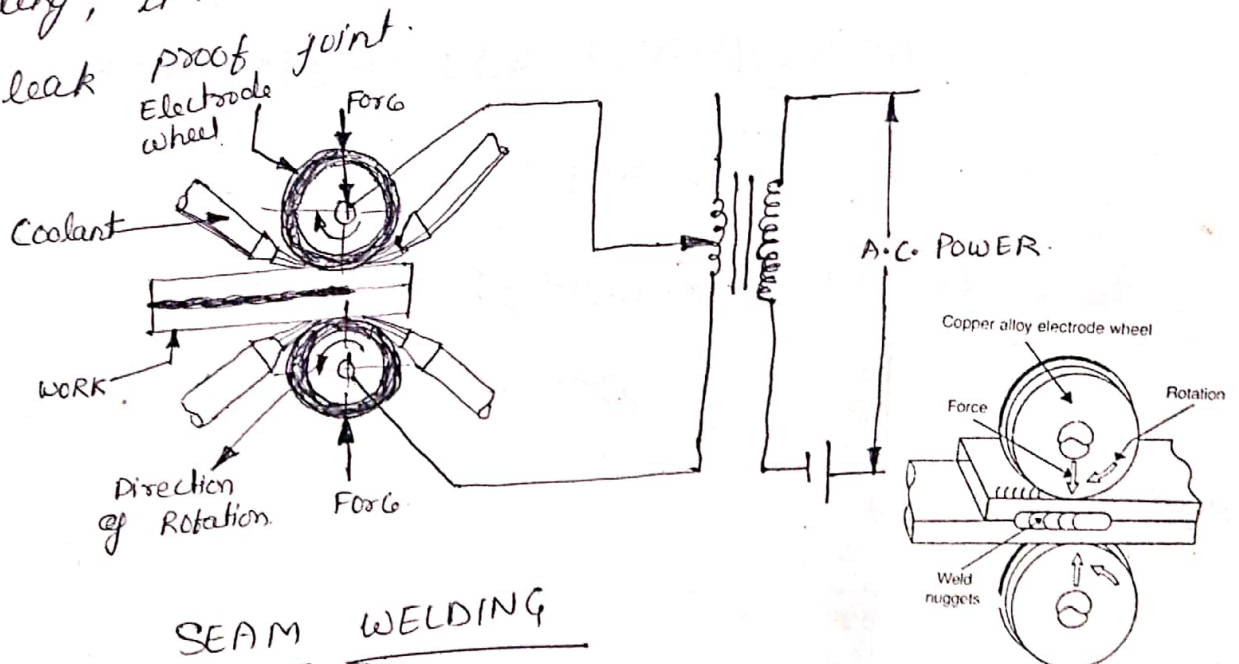 leak proof joint.
Electrode
wheel.
Force
Coolant
A.C. POWER.
WORK
Direction
of Rotation.
Force
SEAM WELDING
Copper alloy electrode wheel
Force
Rotation
Weld
nuggets